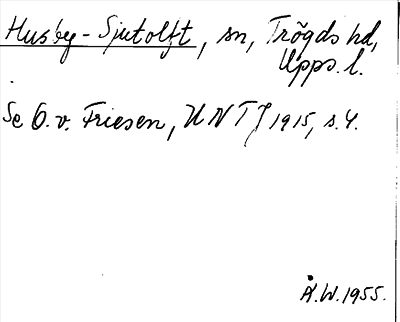 Husby-Sjutolft, sn, Trögds hd,
Upps. l.
Se O. v. Friesen, UNT J 1915, s. 4.
Å.W. 1955.